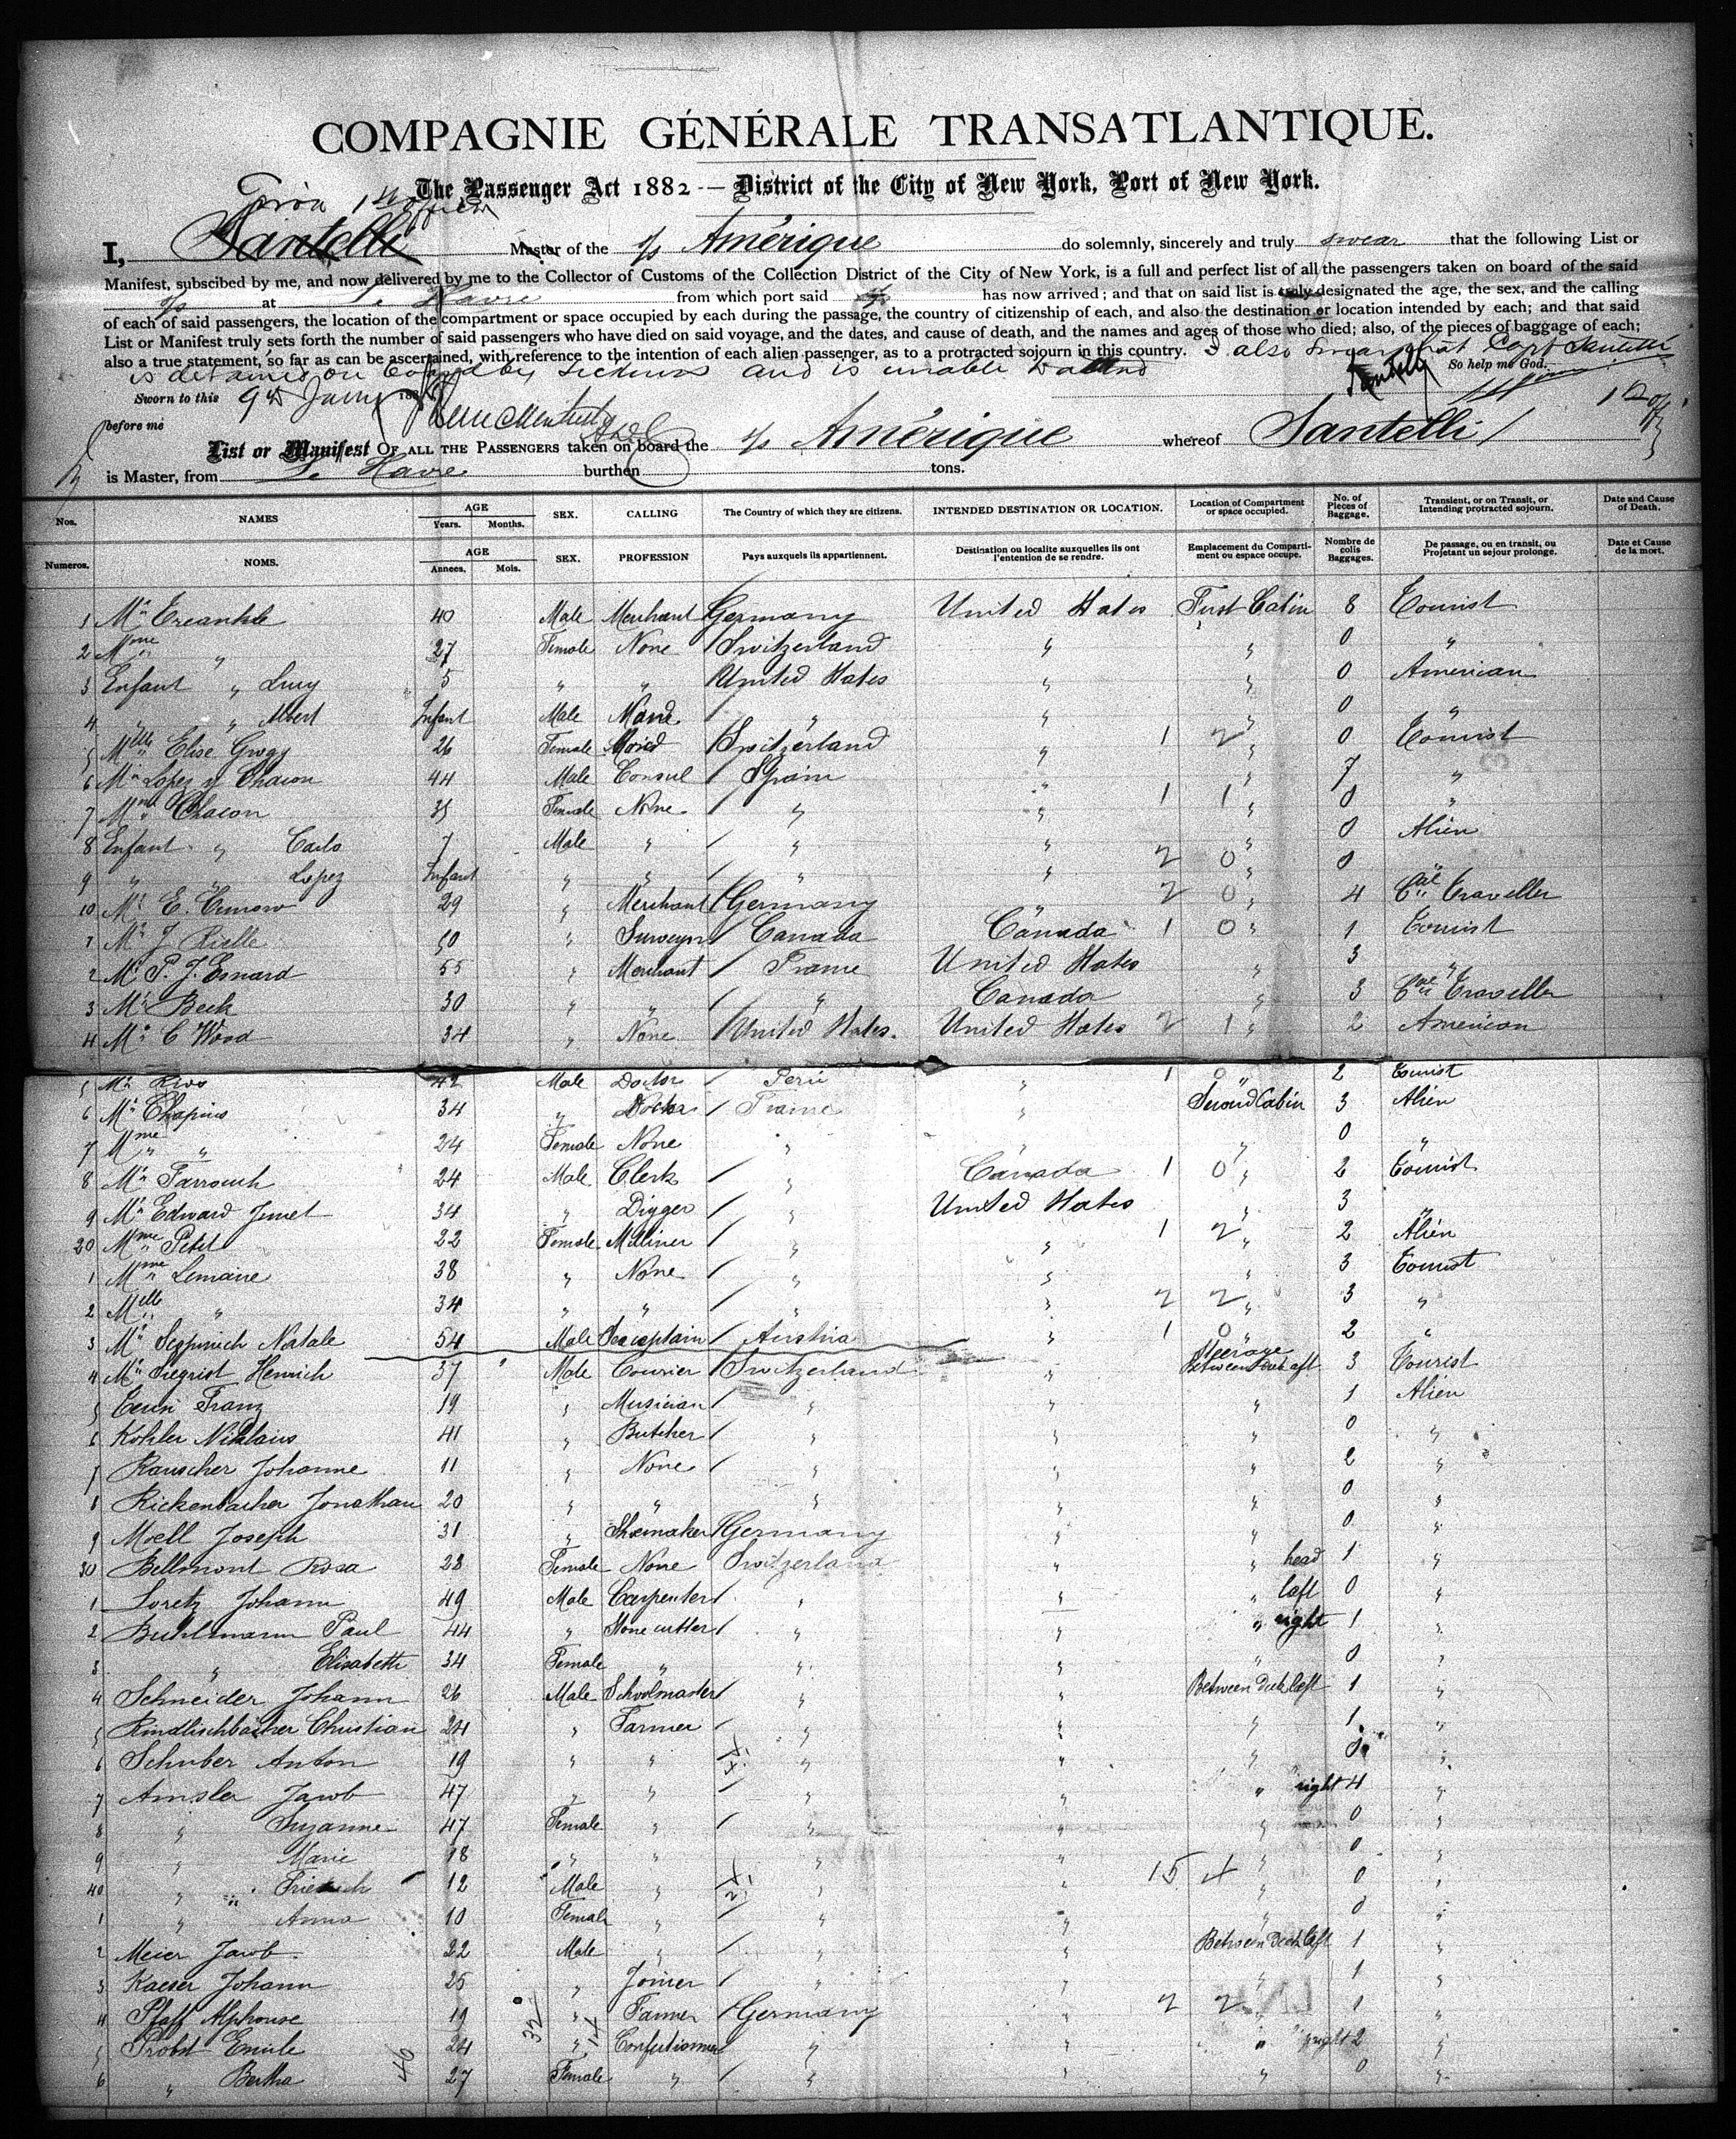 COMPAGNIE GÉNÉRALE TRANSATLANTIQUE.
The Passenger Act 1882 — District of the City of New York, Port of New York.
1st officer
I, Santelli Master of the s/s Amérique do solemnly, sincerely and truly swear that the following List or
Manifest, subscibed by me, and now delivered by me to the Collector of Customs of the Collection District of the City of New York, is a full and perfect list of all the passengers taken on board of the said
s/s at Le Havre from which port said s/s has now arrived; and that on said list is truly designated the age, the sex, and the calling
of each of said passengers, the location of the compartment or space occupied by each during the passage, the country of citizenship of each, and also the destination or location intended by each; and that said
List or Manifest truly sets forth the number of said passengers who have died on said voyage, and the dates, and cause of death, and the names and ages of those who died; also, of the pieces of baggage of each;
also a true statement, so far as can be ascertained, with reference to the intention of each alien passenger, as to a protracted sojourn in this country. I also swear that Capt Santelli
is detained on board by sickness and is unable to attend Santelli So help me God.
Sworn to this 9th 188
before me
List or Manifest OF ALL THE PASSENGERS taken on board the s/s Amérique whereof Santelli
is Master, from Le Havre burthen tons.
Nos. NAMES AGE Years. Months. SEX. CALLING The Country of which they are citizens. INTENDED DESTINATION OR LOCATION. Location of Compartment or space occupied. No. of Pieces of Baggage. Transient, or on Transit, or Intending protracted sojourn. Date and Cause of Death.
Numeros. NOMS. AGE Annees. Mois. SEX. PROFESSION Pays auxquels ils appartiennent. Destination ou localite auxquelles ils ont l'entention de se rendre. Emplacement du Compartiment ou espace occupe. Nombre de colis Baggages. De passage, ou en transit, ou Projetant un sejour prolonge. Date et Cause de la mort.
1 Mr 40 Male Merchant Germany United States First Cabin 8 Tourist
2 Mme " 27 Female None Switzerland " " 0 "
3 Enfant " Lucy 5 " " United States " " 0 American
4 " " Albert Infant Male None " " " 0 "
5 Melle Elise 26 Female Switzerland " 1 2 " 0 Tourist
6 Mr Lopez y Chacon 44 Male Consul Spain " " 7 "
7 Mme Chacon 35 Female None " " 1 1 " 0 "
8 Enfant " Carlo 7 Male " " " " 0 Alien
9 " " Lopez Infant " " " " 2 0 " 0
10 Mr E. 29 " Merchant Germany " 2 0 " 4 Traveller
1 Mr J Rielle 50 " Surveyor Canada Canada 1 0 " 1 Tourist
2 Mr P. J. Esnard 55 " Merchant France United States " 3 "
3 Mr Beck 30 " " " Canada " 3 Traveller
4 Mr C Wood 34 " None United States. United States 2 1 " 2 American
5 Mr Rivo 42 Male Doctor Peru " 1 0 " 2 Tourist
6 Mr Chapius 34 " Doctor France " Second Cabin 3 Alien
7 Mme " 24 Female None " " " 0 "
8 Mr 24 Male Clerk " Canada 1 0 " 2 Tourist
9 Mr Edward Jumel 34 " Digger " United States " 3 "
20 Mme Petit 22 Female Milliner " " 1 2 " 2 Alien
1 Mme Lemaire 38 " None " " " 3 Tourist
2 Melle " 34 " " " " 2 2 " 3 "
3 Mr Natale 54 Male Sea captain Austria " 1 0 " 2 "
4 Mr Siegrist Henrich 37 Male Courier Switzerland " Steerage Between Deck aft 3 Tourist
5 Franz 19 " Musician " " " 1 Alien
6 Kohler Niklaus 41 " Butcher " " " 0 "
7 Rauscher Johanne 11 " None " " " 2 "
8 Rickenbacher Jonathan 20 " " " " " 0 "
9 Moell Joseph 31 " Shoemaker Germany " " 0 "
30 Bellmont Rosa 28 Female None Switzerland " " head 1 "
1 Loretz Johann 49 Male Carpenter " " " left 0 "
2 Buhlmann Paul 44 " Stone cutter " " " right 1 "
3 " Elisabeth 34 Female " " " " 0 "
4 Schneider Johann 26 Male Schoolmaster " " Between deck left 1 "
5 Rindlischbacher Christian 24 " Farmer " " " 1 "
6 Schuber Anton 19 " " " " " 0 "
7 Amsler Jacob 47 " " " " " right 4 "
8 " Suzanne 47 Female " " " " 0 "
9 " Marie 18 " " " " " 0 "
40 " 12 Male " " " 15 4 " 0 "
1 " Anna 10 Female " " " " 0 "
2 Meier Jacob 22 Male " " " Between Deck left 1 "
3 Kaeser Johann 25 " Joiner " " " 1 "
4 Pfaff Alphonse 19 " Farmer Germany " 2 2 " 1 "
5 Probst Emile 24 " Confectioner " " " right 2 "
6 " Bertha 27 Female " " " " 0 "
46 32 14